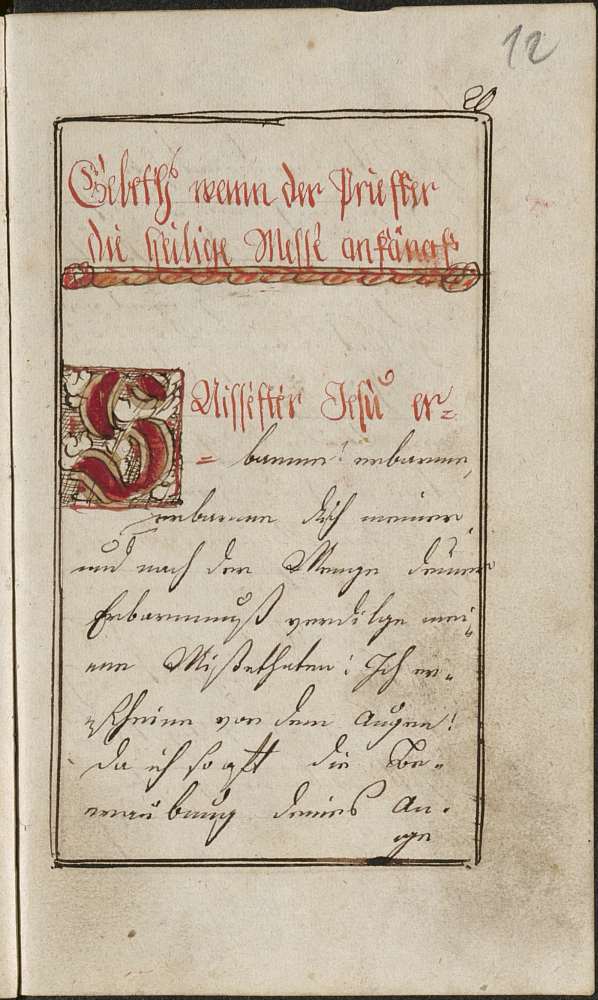 12
20
Gebeth wann der Priester
die heilige Messe anfängt
Süissester Jesu er=
= barme! erbarme,
erbarme dich meiner
und nach der Menge deiner
Erbarmnuß verdilge mei„
ne Missethaten! Ich er„
„scheine vor dem Augen!
da ich so oft die Be„
deines An„
ge